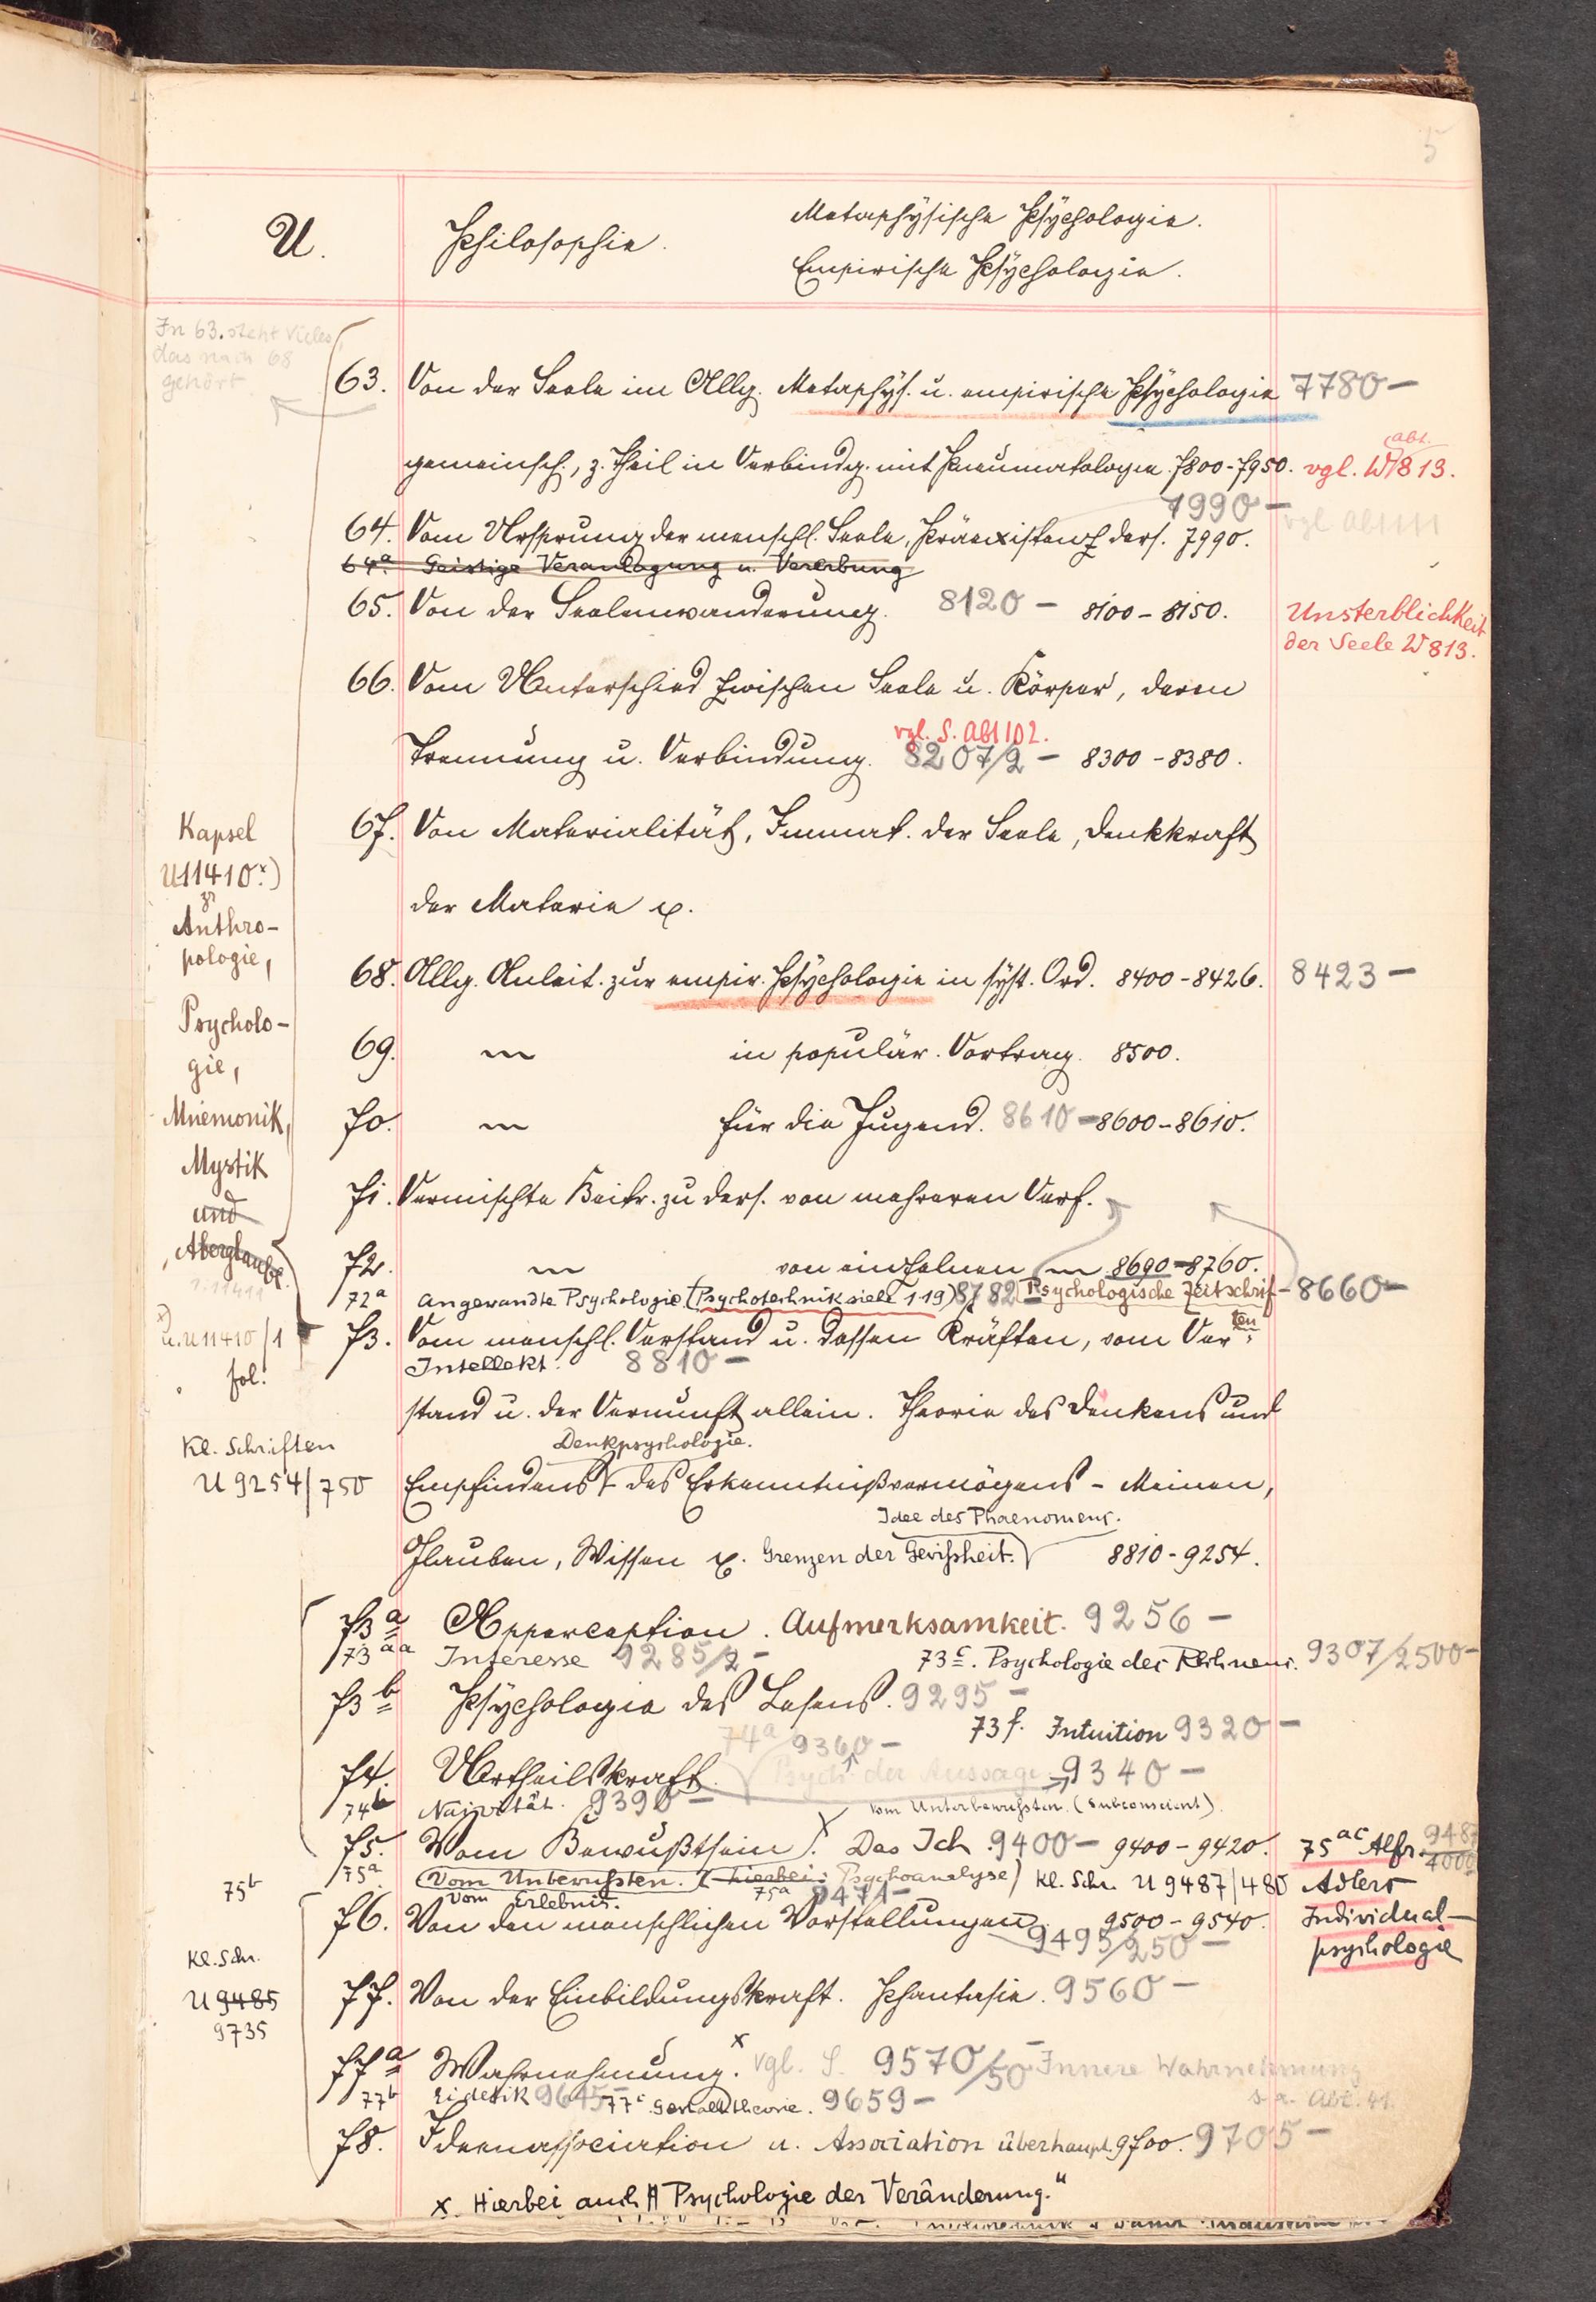 5
U. Philosophie. Metaphÿsische Psÿchologie.
Empirische Psÿchologie.
In 63. steht Vieles,
das nach 68
gehört
63. Von der Seele im Allg. Metaphys. u. empirische Psÿchologie 7780 –
gemeinsch., z. Theil in Verbindg. mit Pneumatologie. 7800 - 7950. vgl. W abt. 813.
7990 –
64. Vom Ursprung der menschl. Seele, Präexistenz ders. 7990.
64a. Geistige Veranlagung u. Vererbung
65. Von der Seelenwanderung. 8120 – 8100 – 8150. Unsterblichkeit
der Seele W 813.
66. Vom Unterschied zwischen Seele u. Körper, deren
vgl. S. Abt 102.
Trennung u. Verbindung. 8207/2 – 8300 – 8380.
67. Von Materialität, Immat. der Seele, Denkkraft
der Materie
Kapsel
U 11410 x)
Anthro-
pologie,
Psycholo-
gie,
Mnemonik,
Mystik
und
Aberglaube.
68. Allg. Anleit. zur empir. Psÿchologie in sÿst. Ord. 8400 – 8426. 8423 –
69. " in populär. Vortrag. 8500.
70. " für die Jugend. 8610 – 8600 – 8610.
71. Vermischte Beitr. zu ders. von mehreren Verf.
72. " von einzelnen " 8690 – 8760.
72a Angewandte Psychologie. (Psychotechnik siehe T 19) 8782 – Psychologische Zeitschrif- 8660 –
ten
x) u. U 11410/1
fol.
73. Vom menschl. Verstand u. dessen Kräften, vom Ver-
Intellekt. 8810 –
stand u. der Vernunft allein. Theorie des Denkens und
Denkpsychologie.
Kl. Schriften
U 9254/750
Empfindens – des Erkenntnißvermögens – Meinen,
Idee des Phaenomens.
Glauben, Wissen Grenzen der Gewißheit. 8810 - 9254.
73a Apperception. Aufmerksamkeit. 9256 –
73aa Interesse 9285/2 – 73c. Psychologie des Rechnens. 9307/2500 –
73b Psÿchologie des Lesens. 9295 –
73f. Intuition 9320 –
74a 9360 –
74. Urtheilskraft. Psych. der Aussage 9340 –
74b Naivität. 9390 – Vom Unterbewußten. (Subconscient).
75. Vom Bewußtsein. Das Ich. 9400 – 9400 – 9420. 75ac Alfr. 9487/4000
75a Vom Unbewußten. (hierbei: Psychoanalyse) Kl. Schr. U 9487/480 Adlers
Vom Erlebnis. 75a 9471 –
75b
76. Von den menschlichen Vorstellungen. 9500 – 9540. Individual-
9495/250 – psychologie
Kl. Schr.
U 9485
9735
77. Von der Einbildungskraft. Phantasie. 9560 –
77a Wahrnehmung. x vgl. S. 9570/50 – Innere Wahrnehmung
77b Eidetik 9645 – 77c Gestalttheorie. 9659 – s. a. Abt. 41.
78. Ideenassociation u. Association überhaupt. 9700. 9705 –
x Hierbei auch "Psychologie der Veränderung."